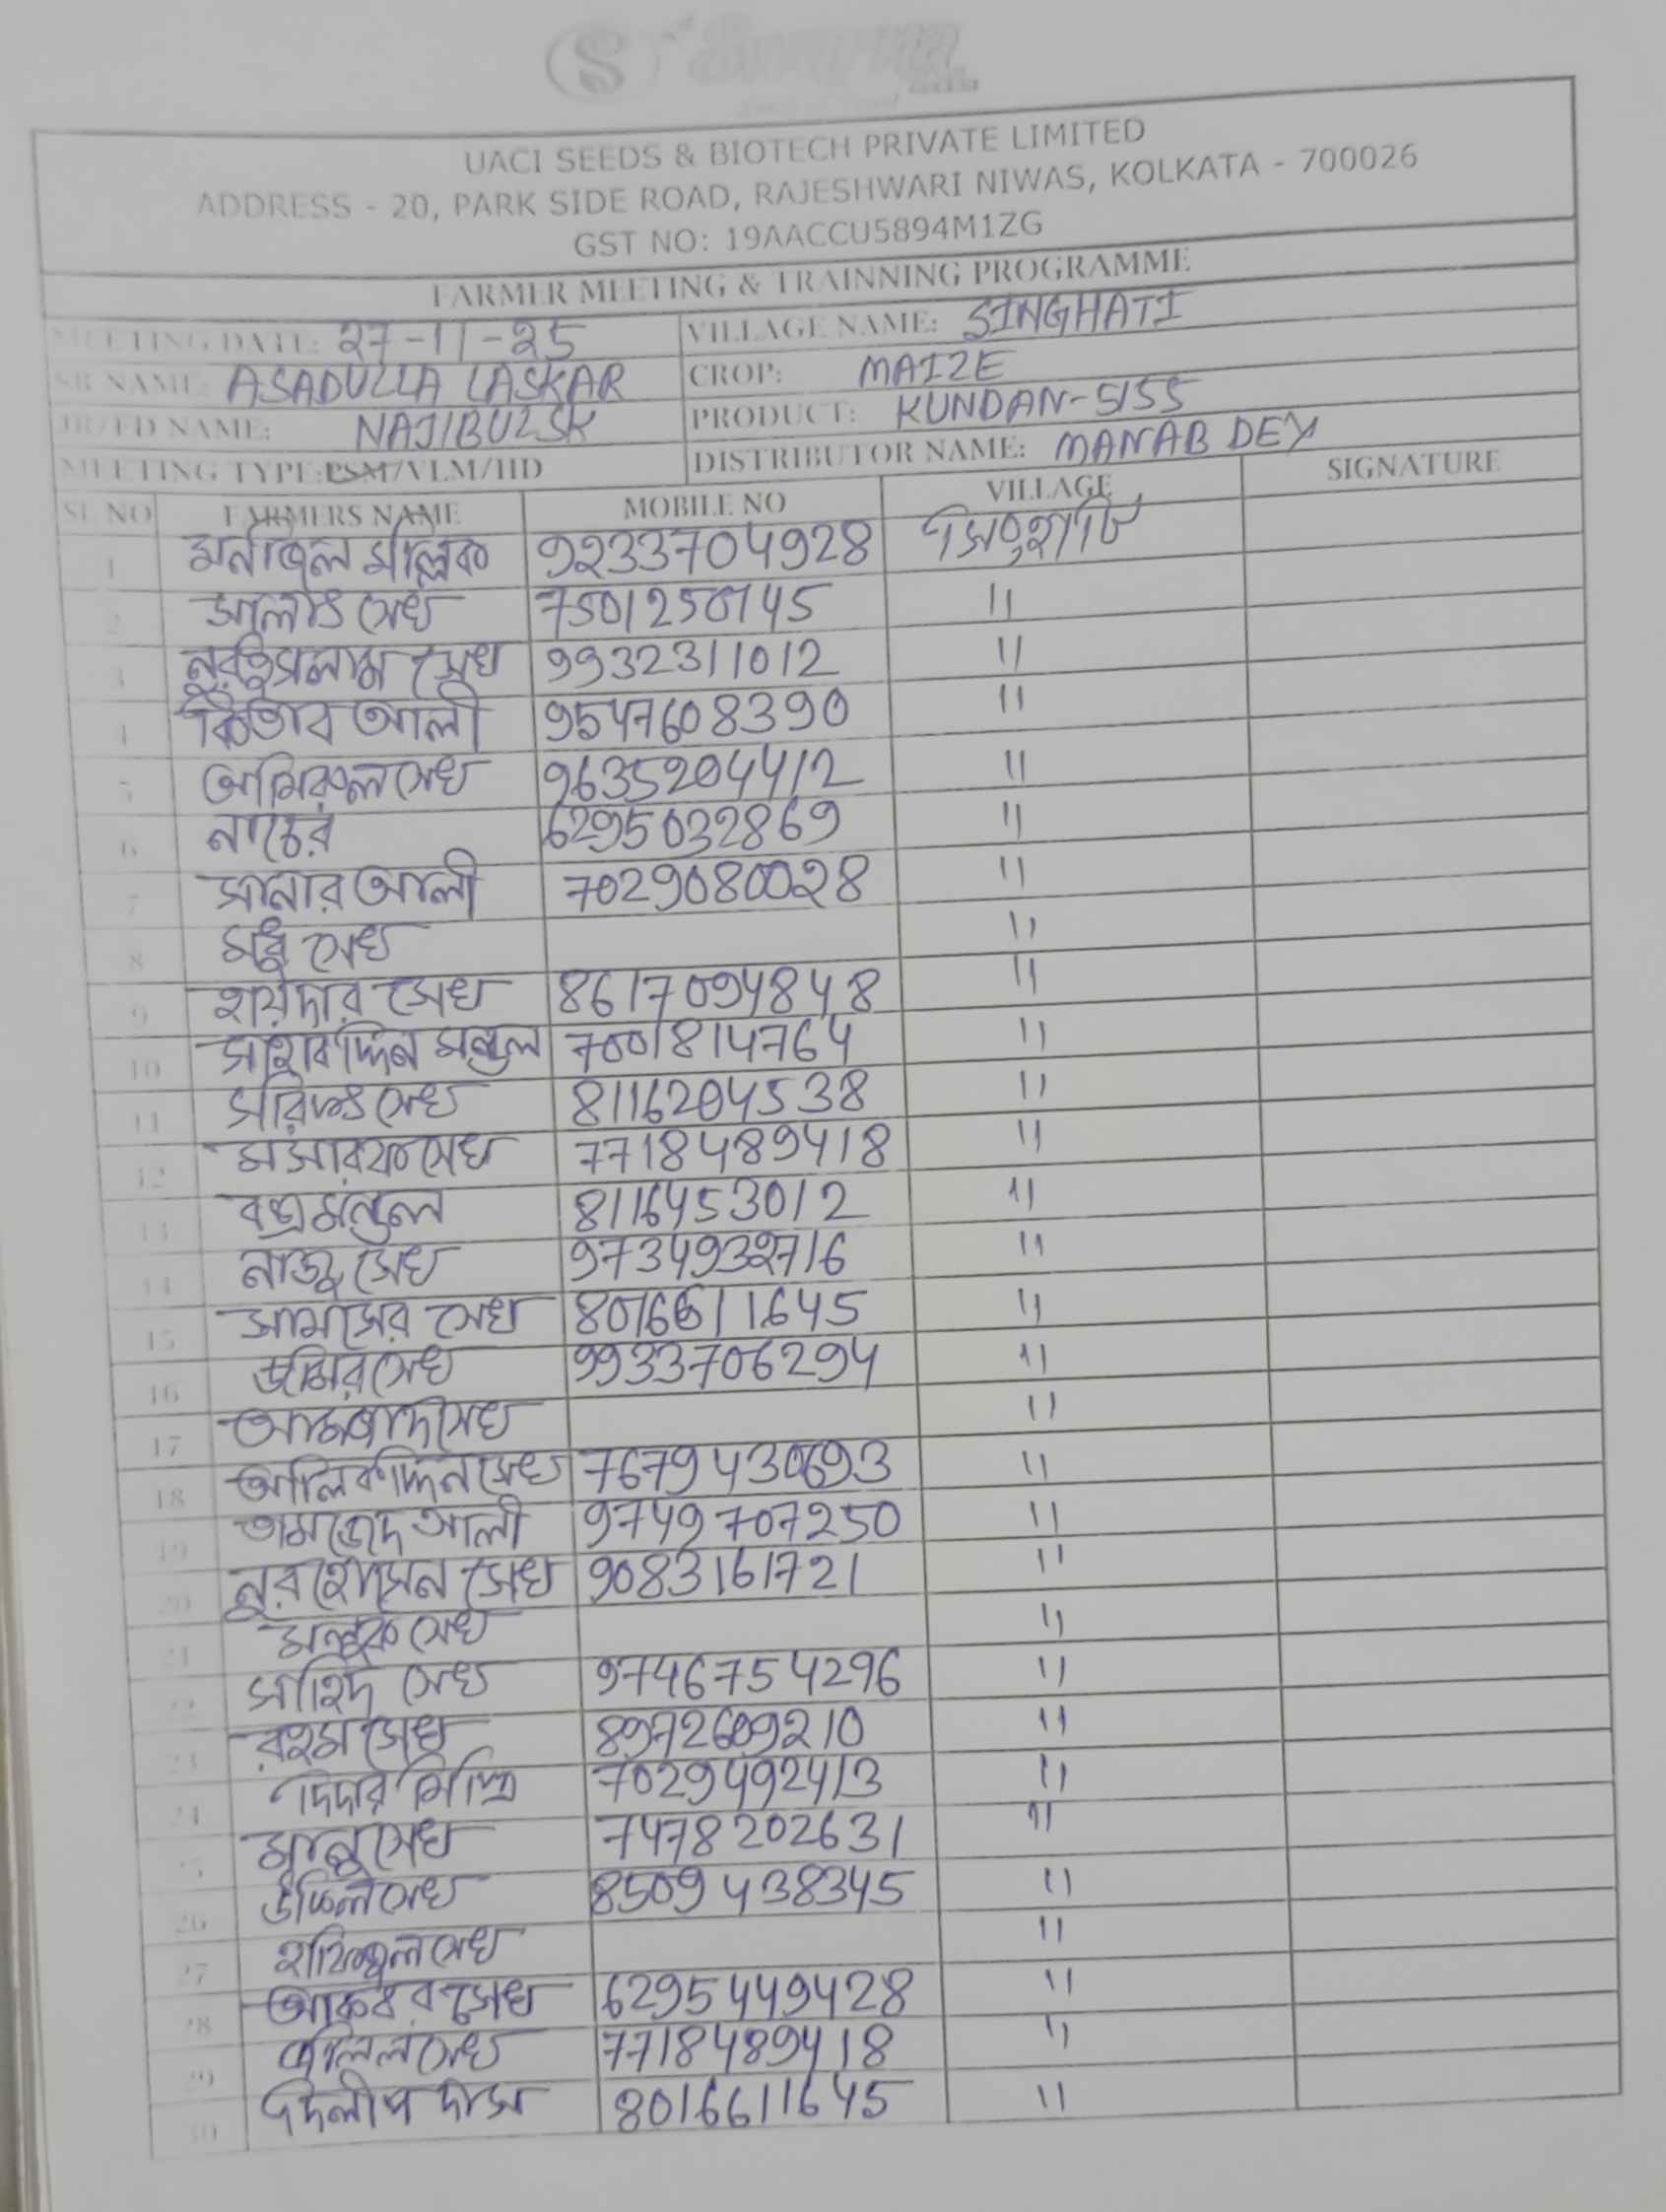 S
UACI SEEDS & BIOTECH PRIVATE LIMITED
ADDRESS - 20, PARK SIDE ROAD, RAJESHWARI NIWAS, KOLKATA - 700026
GST NO: 19AACCU5894M1ZG
FARMER MEETING & TRAINNING PROGRAMME
MEETING DATE: 27-11-25 VILLAGE NAME: SINGHATI
SR NAME: ASADULLA LASKAR CROP: MAIZE
JR/FD NAME: NAJIBUL SK PRODUCT: KUNDAN-5155
MEETING TYPE: PSM/VLM/HD DISTRIBUTOR NAME: MANAB DEY
SL NO FARMERS NAME MOBILE NO VILLAGE SIGNATURE
1 মল্লিক 9233704928
2 সেখ 7501250745 "
3 নুরইসলাম সেখ 9932311012 "
4 কিতাব আলী 9547608390 "
5 আমিরুল সেখ 9635204412 "
6 6295032869 "
7 সানার আলী 7029080028 "
8 সেখ "
9 হায়দার সেখ 8617094848 "
10 সাহাবদ্দিন মন্ডল 7001814764 "
11 সেখ 8116204538 "
12 সেখ 7718489418 "
13 মন্ডল 8116453012 "
14 সেখ "
15 সামসের সেখ "
16 জমির সেখ 9933706294 "
17 সেখ "
18 সেখ "
19 আমজেদ আলী 9749707250 "
20 নুরহোসেন সেখ 9083161721 "
21 সেখ "
22 সাহিদ সেখ 9746754296 "
23 সেখ 8972609210 "
24 দিদার 7029492413 "
25 সেখ 7478202631 "
26 উকিল সেখ 8509438345 "
27 সেখ "
28 আকবর সেখ 6295449428 "
29 জলিল সেখ 7718489418 "
30 দিলীপ দাস 8016611645 "